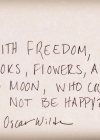 ITH FREEDOM,
OOKS, FLOWERS, A
MOON, WHO CO
NOT BE HAPPY?
Oscar Wilde